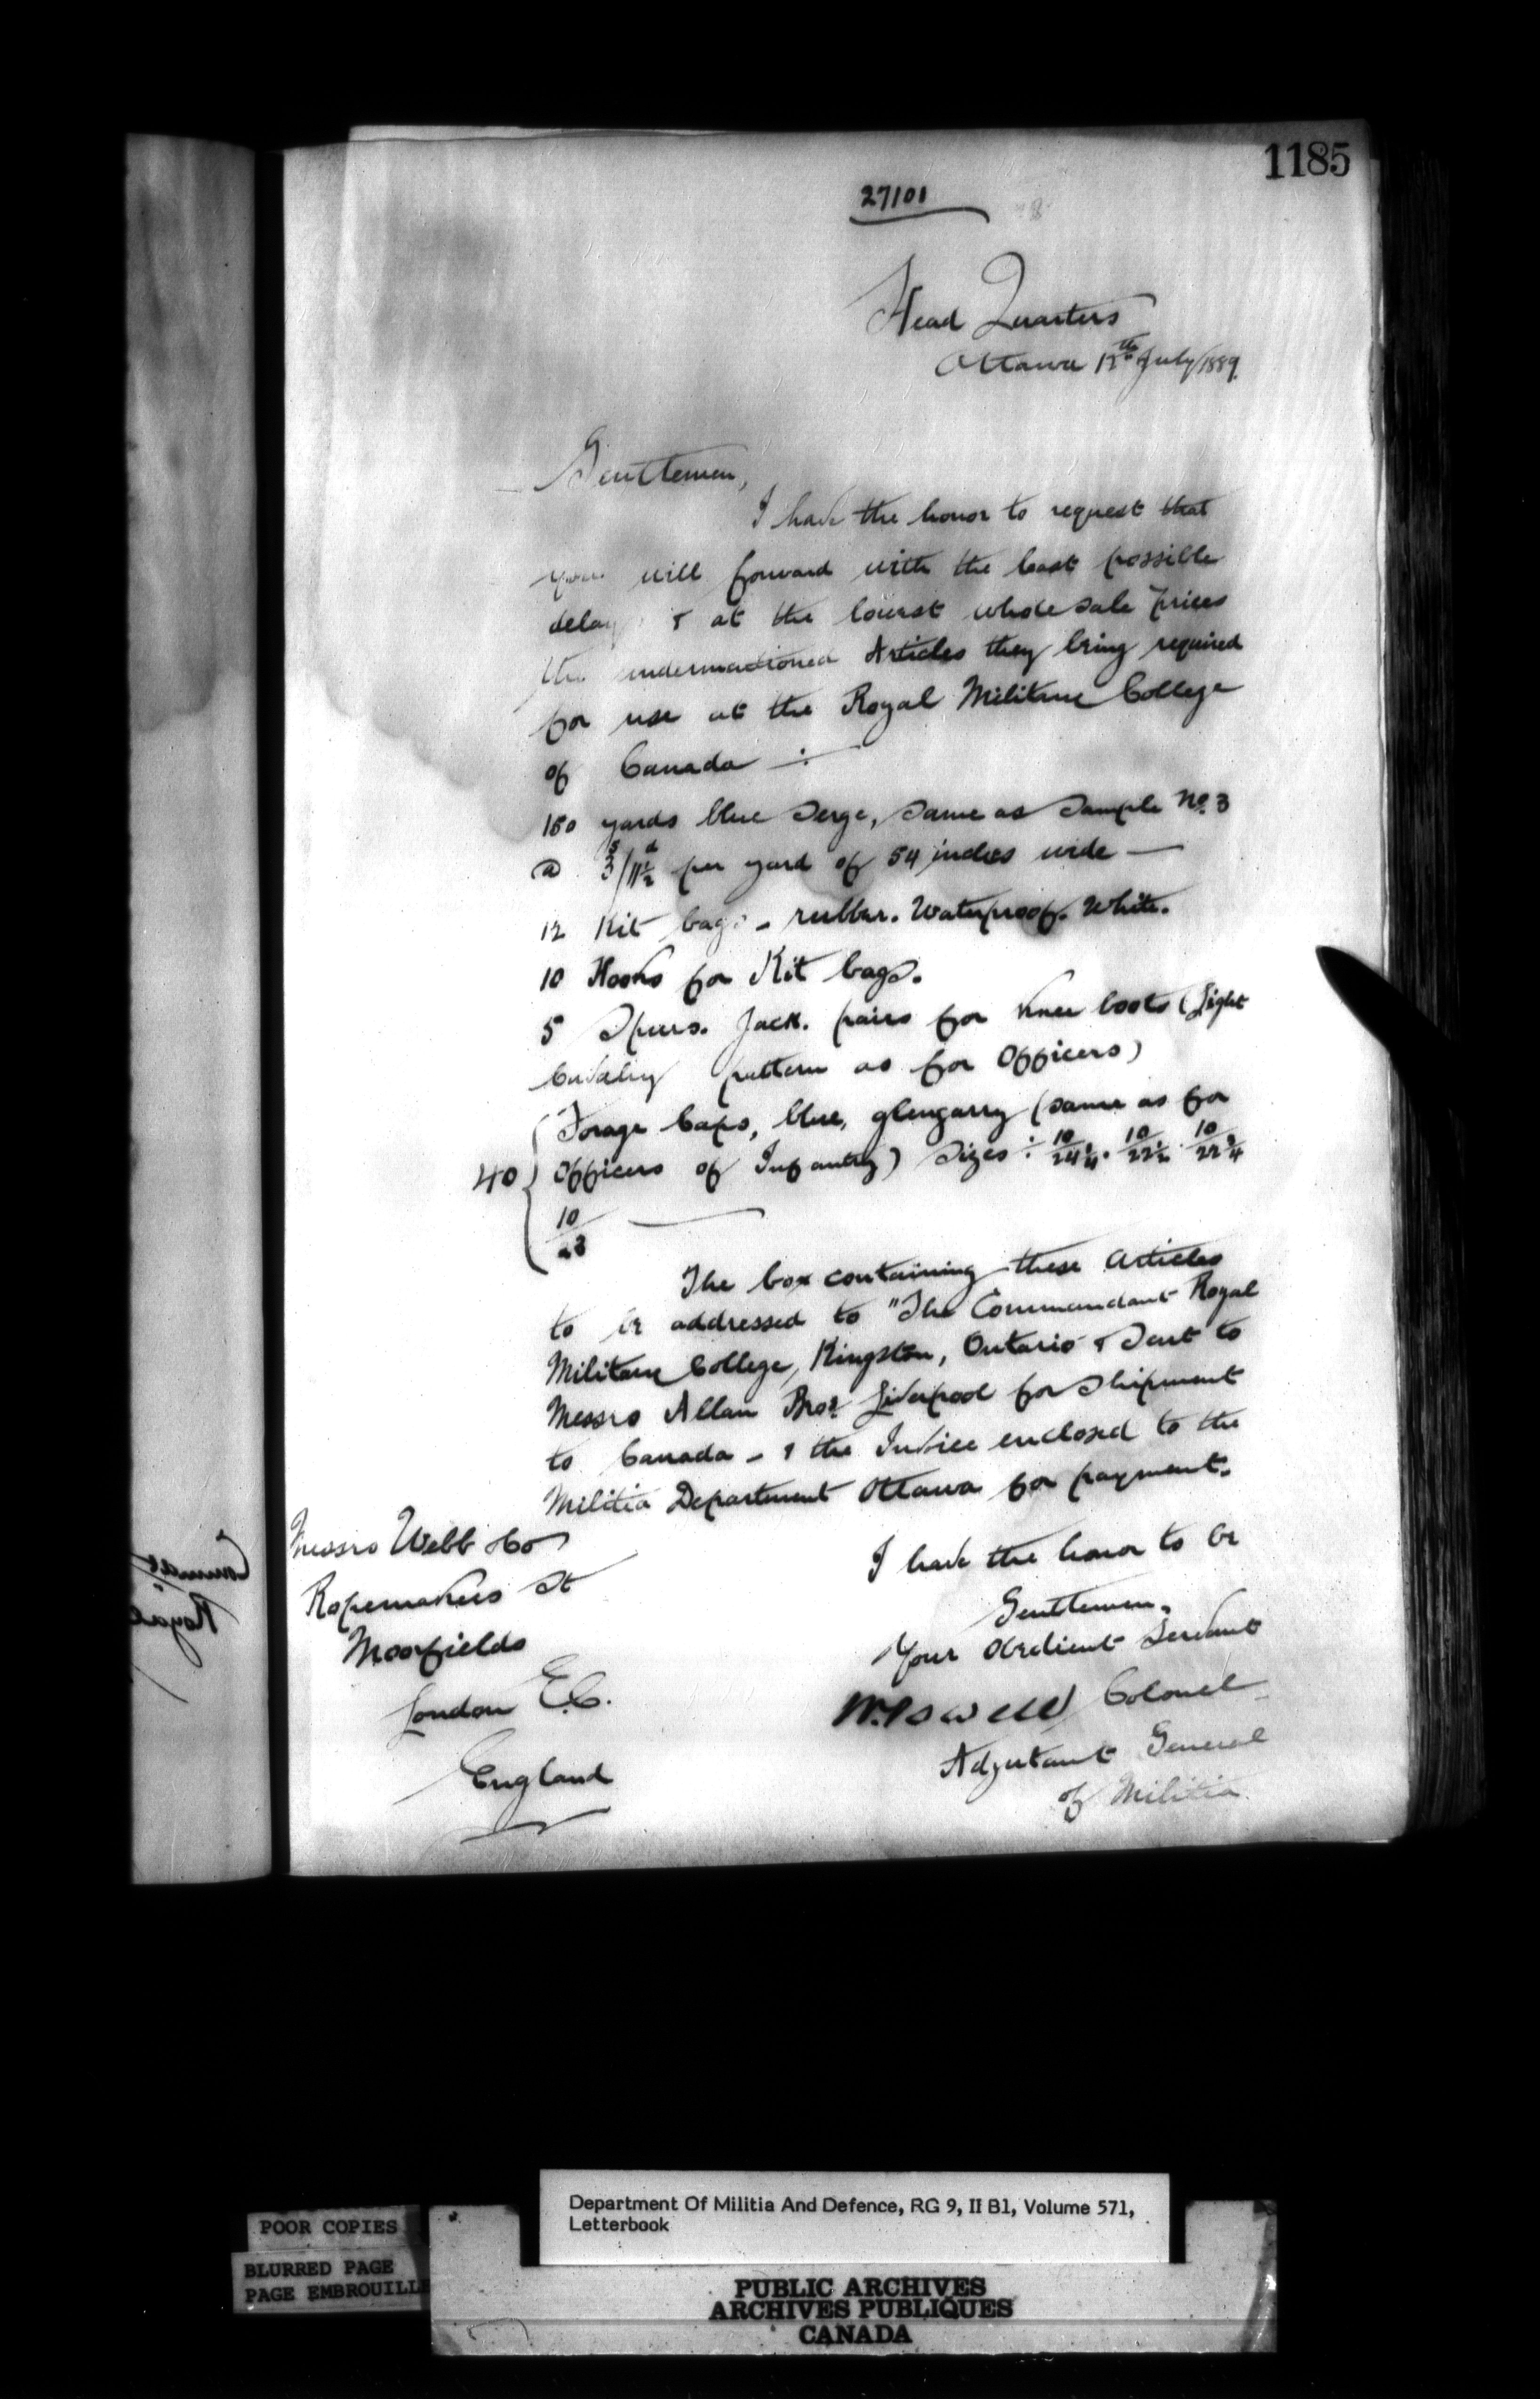 1185
27101
Head Quarters
Ottawa 12th July/1889.
Gentlemen,
I have the honor to request that
you will forward with the least possible
delay & at the lowest wholesale prices
the undermentioned Articles they being required
for use at the Royal Military College
of Canada :-
150 yards blue Serge, same as Sample No. 3
@ 3s/11½d per yard of 54 inches wide —
12 Kit bags - rubber. Waterproof. White.
10 Hooks for Kit bags.
5 Spurs. Jack. pairs for Knee boots (Light
Cavalry pattern as for Officers)
Forage Caps, blue, glengarry (same as for
40 { Officers of Infantry) Sizes : 10/ 10/22½ . 10/22¾
10/23 —
The box containing these Articles
to be addressed to "The Commandant Royal
Military College, Kingston, Ontario & Sent to
Messrs Allan Bros. Liverpool for Shipment
to Canada - & the Invoice enclosed to the
Militia Department Ottawa for payment.
I have the honor to be
Gentlemen.
Your Obedient Servant
W. Powell Colonel
Adjutant General
of Militia
Messrs Webb & Co
Ropemakers St
Moorfields
London E.C.
England
Royal
Department Of Militia And Defence, RG 9, II B1, Volume 571,
Letterbook
POOR COPIES
BLURRED PAGE
PAGE EMBROUILLE
PUBLIC ARCHIVES
ARCHIVES PUBLIQUES
CANADA